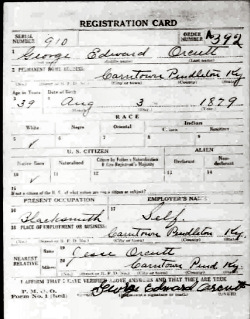 REGISTRATION CARD
SERIAL NUMBER 910 ORDER NUMBER 392
George Edward Orcutt
2 PERMANENT HOME ADDRESS:
Carntown Pendleton Ky.
Age in Years Date of Birth
39 Aug 3 1879
RACE
White Negro Oriental Indian
U. S. CITIZEN ALIEN
Native Born Naturalized Citizen by Father's Naturalization
PRESENT OCCUPATION EMPLOYER'S NAME
Blacksmith Self.
PLACE OF EMPLOYMENT OR BUSINESS:
Carntown Pendleton Ky.
NEAREST RELATIVE
Jesse Orcutt
Carntown Pend Ky.
I AFFIRM THAT I HAVE VERIFIED ABOVE ANSWERS AND THAT THEY ARE TRUE
P. M. G. O.
Form No. 1 (Red) George Edward Orcutt